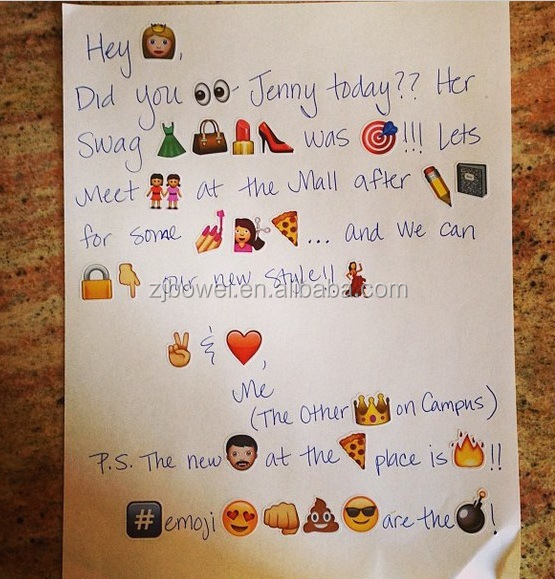 Hey 👸,
Did you 👀 Jenny today?? Her
Swag 👗👜💄👠 was 🎯!!! Lets
Meet 👭 at the Mall after ✏️📓
for some 💅💇🍕... and we can
🔒👇 our new style!! 💃
zjbowei.en.alibaba.com
✌️ & ❤️,
Me
(The Other 👑 on Campus)
P.S. The new 👨 at the 🍕 place is 🔥!!
#️⃣ emoji 😍👊💩😎 are the 💣!